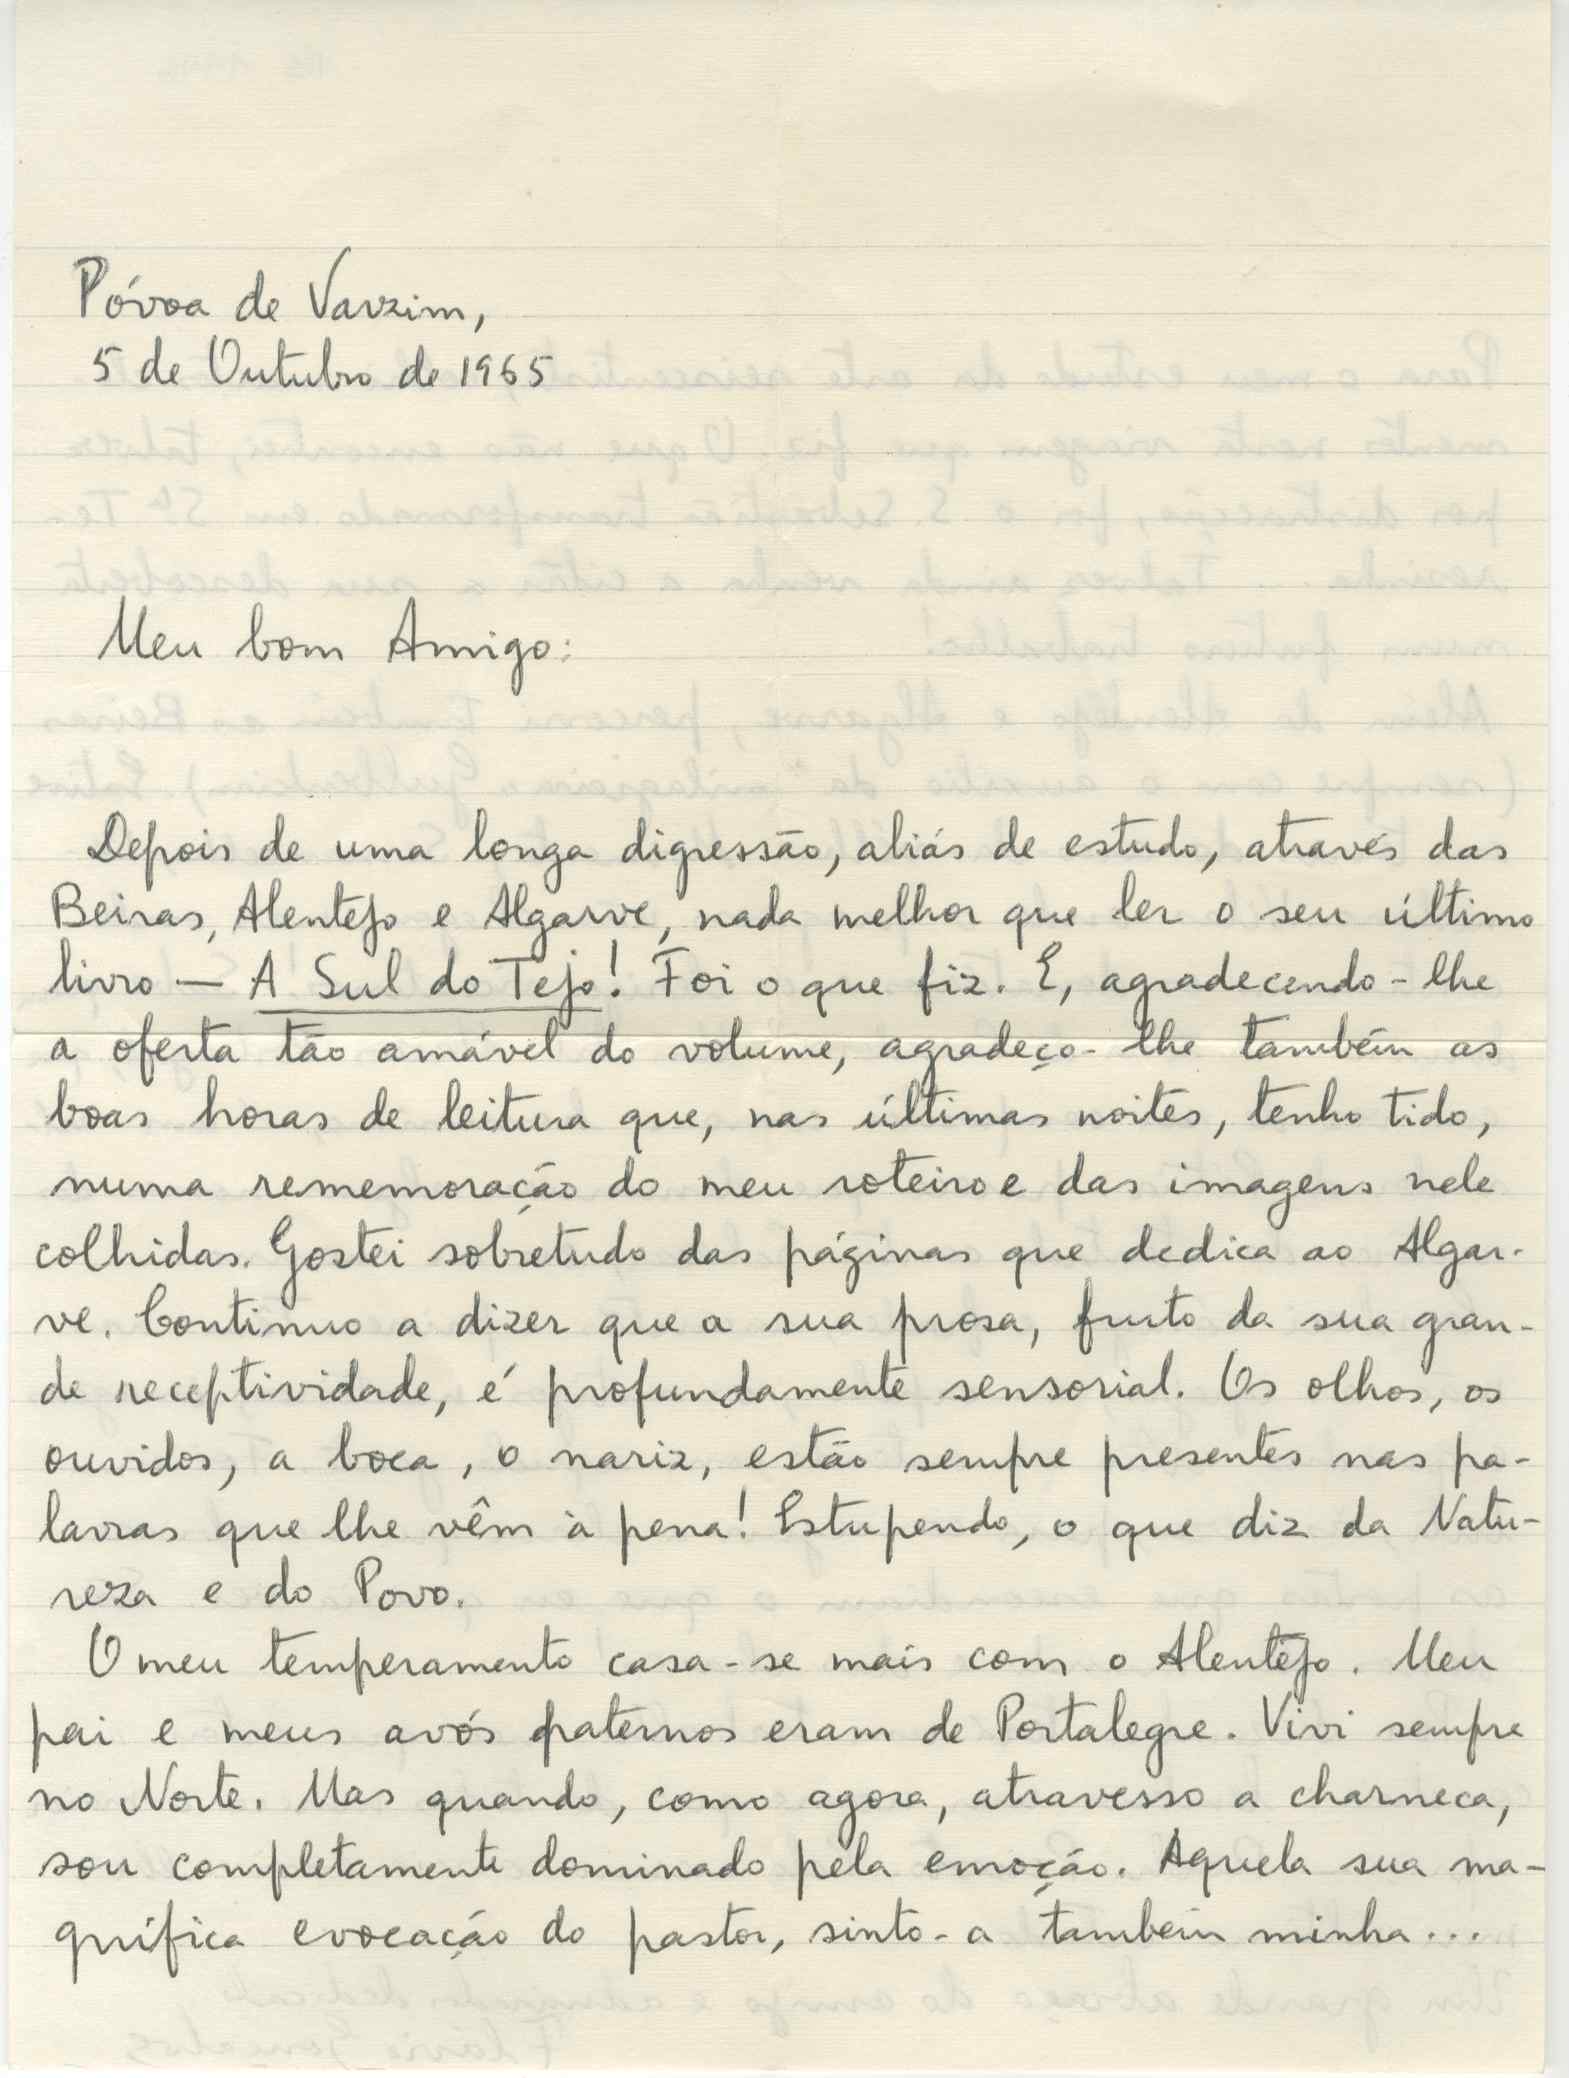 Póvoa de Varzim,
5 de Outubro de 1965
Meu bom Amigo:
Depois de uma longa digressão, aliás de estudo, através das
Beiras, Alentejo e Algarve, nada melhor que ler o seu último
livro — A Sul do Tejo! Foi o que fiz. E, agradecendo-lhe
a oferta tão amável do volume, agradeço-lhe também as
boas horas de leitura que, nas últimas noites, tenho tido,
numa rememoração do meu roteiro e das imagens nele
colhidas. Gostei sobretudo das páginas que dedica ao Algar-
ve. Continuo a dizer que a sua prosa, fruto da sua gran-
de receptividade, é profundamente sensorial. Os olhos, os
ouvidos, a boca, o nariz, estão sempre presentes nas pa-
lavras que lhe vêm à pena! Estupendo, o que diz da Natu-
reza e do Povo.
O meu temperamento casa-se mais com o Alentejo. Meu
pai e meus avós paternos eram de Portalegre. Vivi sempre
no Norte. Mas quando, como agora, atravesso a charneca,
sou completamente dominado pela emoção. Aquela sua ma-
gnífica evocação do pastor, sinto-a também minha...